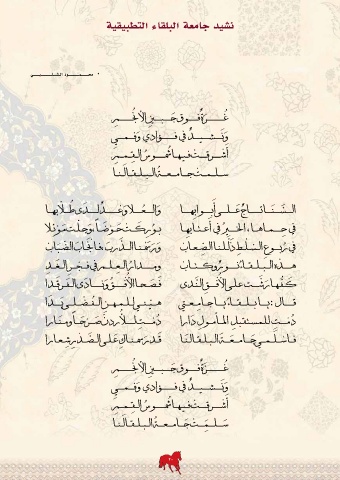 نشيد جامعة البلقاء التطبيقية
* محمود الشلبي
غرة فوق جبين الأنجم
ونشيد في فؤادي وفمي
أشرقت فيها شموس القمم
سلمت جامعة البلقا لنا
الثنا تاج على أبوابها والعلا وعد لدى طلابها
في حماها، الخير في أعتابها بوركت حوضا وجلت موئلا
في ربوع السلط ذللنا الصعاب ورسمنا الدرب فانجاب الضباب
هذه البلقاء نور وكتاب ومدار العلم في فجر الغد
كفها رشت على الأفق الندى فصحا الأفق ونادى الفرقدا
قال: يا بلقاء يا جامعتي هيئي للمهن الفضلى يدا
دمت للمستقبل المأمول دارا دمت للأردن صرحا ومنارا
فاسلمي جامعة البلقا لنا قد رسمناك على الصدر شعارا
غرة فوق جبين الأنجم
ونشيد في فؤادي وفمي
أشرقت فيها شموس القمم
سلمت جامعة البلقا لنا